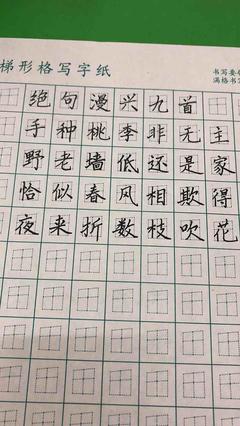 梯形格写字纸
书写要
满格书
绝句漫兴九首
手种桃李非无主
野老墙低还是家
恰似春风相欺得
夜来折数枝吹花